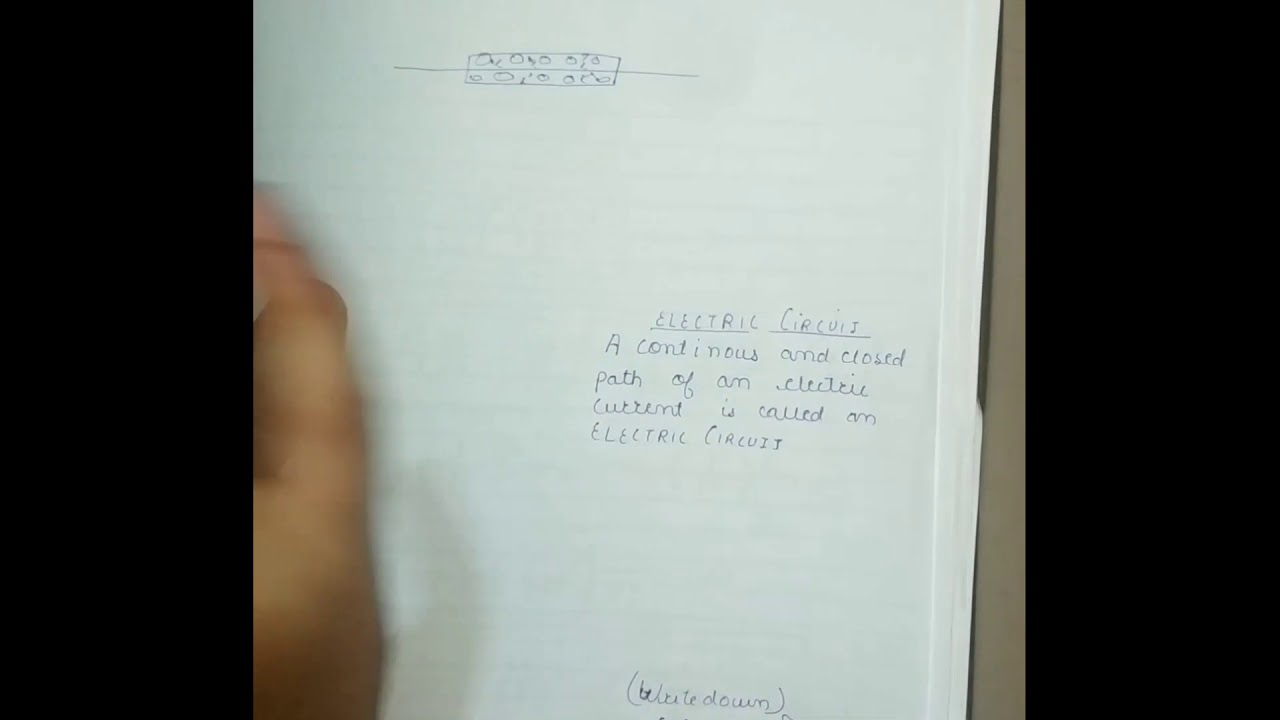 ELECTRIC CIRCUIT
A continous and closed
path of an electric
current is called an
ELECTRIC CIRCUIT
(Write down)